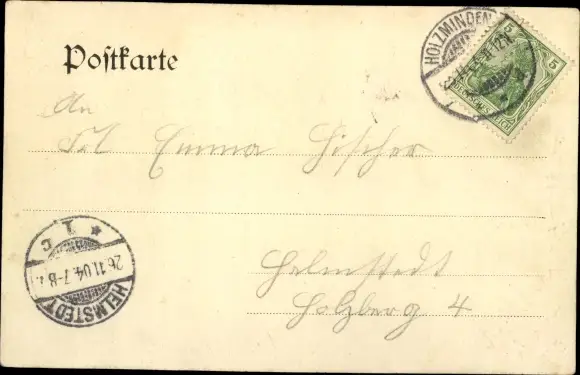 Postkarte
HOLZMINDEN
5 5
An
Frl Emma Fischer
* I c
26.11.04.7-8
HELMSTEDT
Helmstedt
Holzberg 4